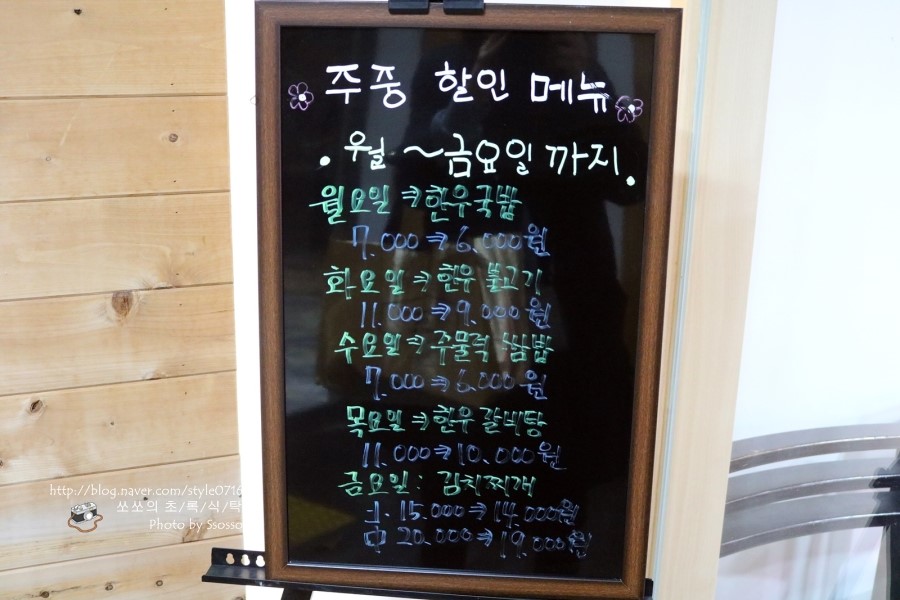 주중 할인 메뉴
. 월 ~금요일까지.
월요일 ⇒ 한우국밥
7.000 ⇒ 6.000원
화요일 ⇒ 한우 불고기
11.000 ⇒ 9.000원
수요일 ⇒ 주물럭 쌈밥
7.000 ⇒ 6.000원
목요일 ⇒ 한우 갈비탕
11.000 ⇒ 10.000원
금요일 : 김치찌개
15.000 ⇒ 14.000원
中 20.000 ⇒ 19.000원
http://blog.naver.com/style0716
쏘쏘의 초/록/식/탁
Photo by Ssosso